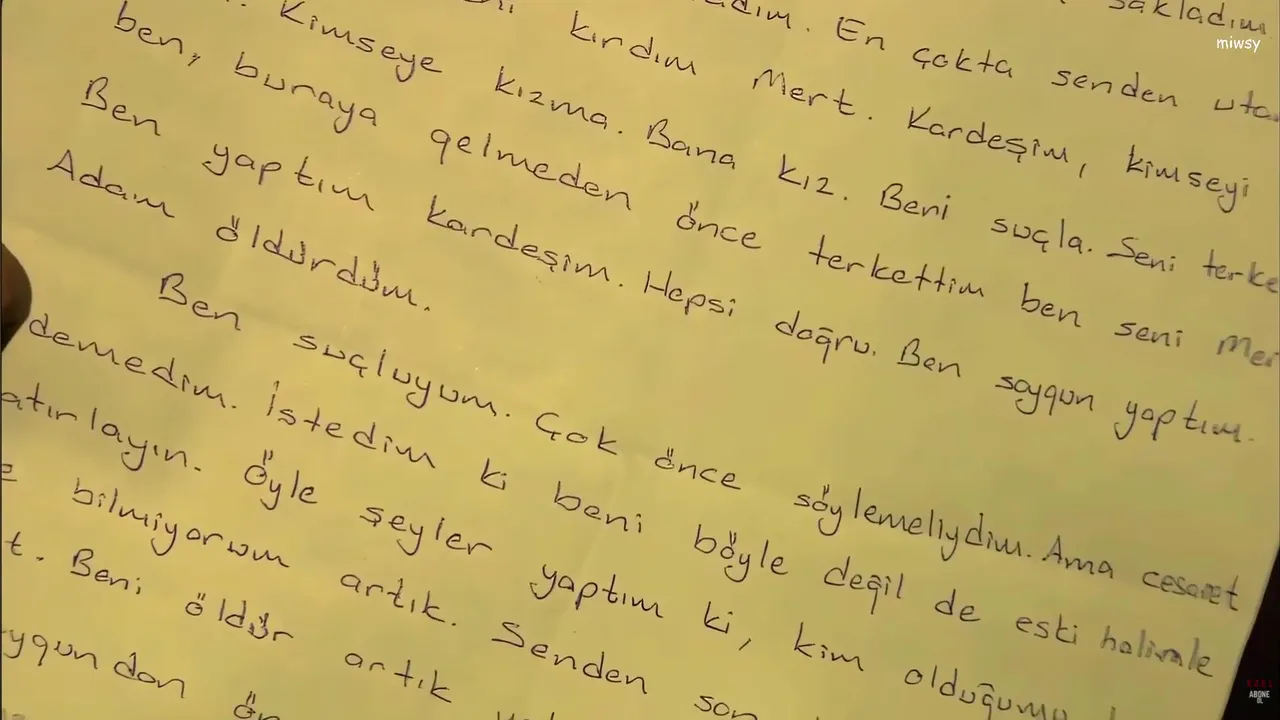 sakladım
En çokta senden uta
kırdım Mert. Kardeşim, kimseyi
Kimseye kızma. Bana kız. Beni suçla. Seni terke
ben, buraya gelmeden önce terkettim ben seni Mer
Ben yaptım kardeşim. Hepsi doğru. Ben soygun yaptım.
Adam öldürdüm.
Ben suçluyum. Çok önce söylemeliydim. Ama cesaret
demedim. İstedim ki beni böyle değil de eski halimle
atırlayın. Öyle şeyler yaptım ki, kim olduğumu
e bilmiyorum artık. Senden son
t. Beni öldür artık
ygundan ön
miwsy
ABONE
OL